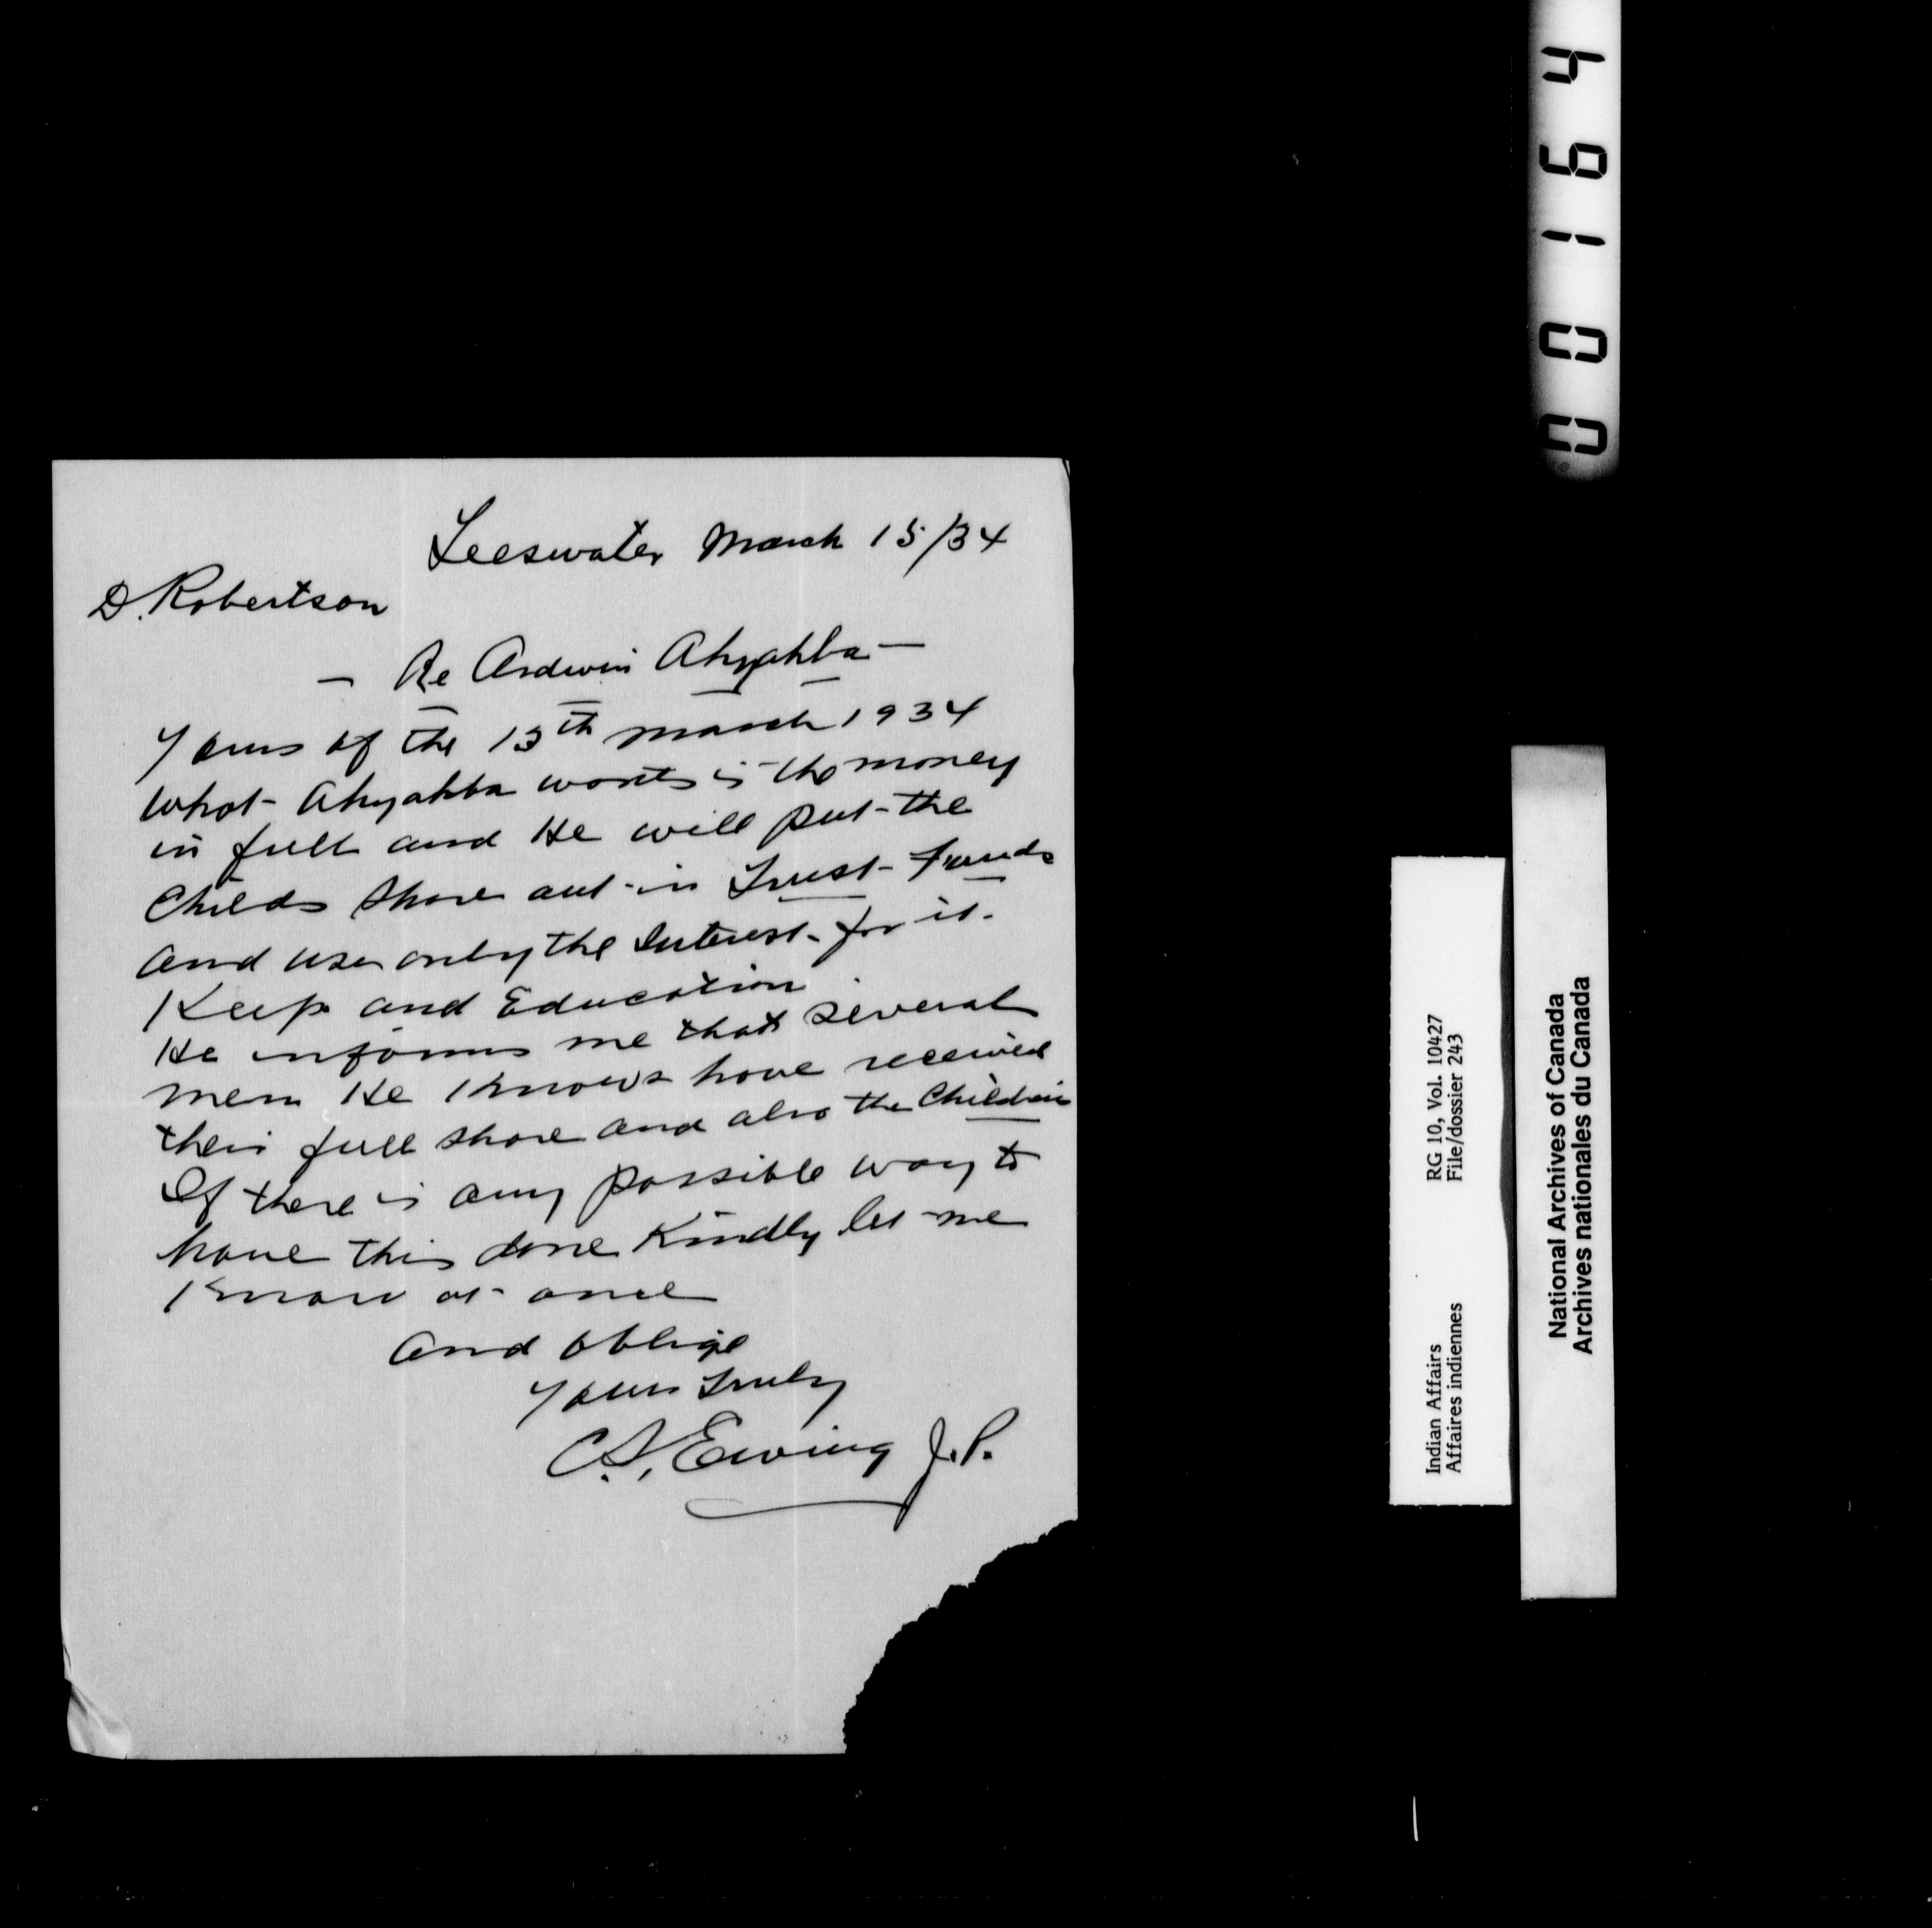 Teeswater March 15/34
D. Robertson
- Re Ardwin Ahyahba -
Yours of the 13th March 1934
What Ahyahba wants is the money
in full and He will put the
Childs Share out in Trust Funds
and use only the Interest for it
Keep and Education
He informs me that several
men He Knows have received
their full share and also the Children
If there is any possible way to
have this done Kindly let me
Know at once
and oblige
Yours truly
C.A. Ewing J.P.
00164
Indian Affairs RG 10, Vol. 10427
Affaires indiennes File/dossier 243
National Archives of Canada
Archives nationales du Canada